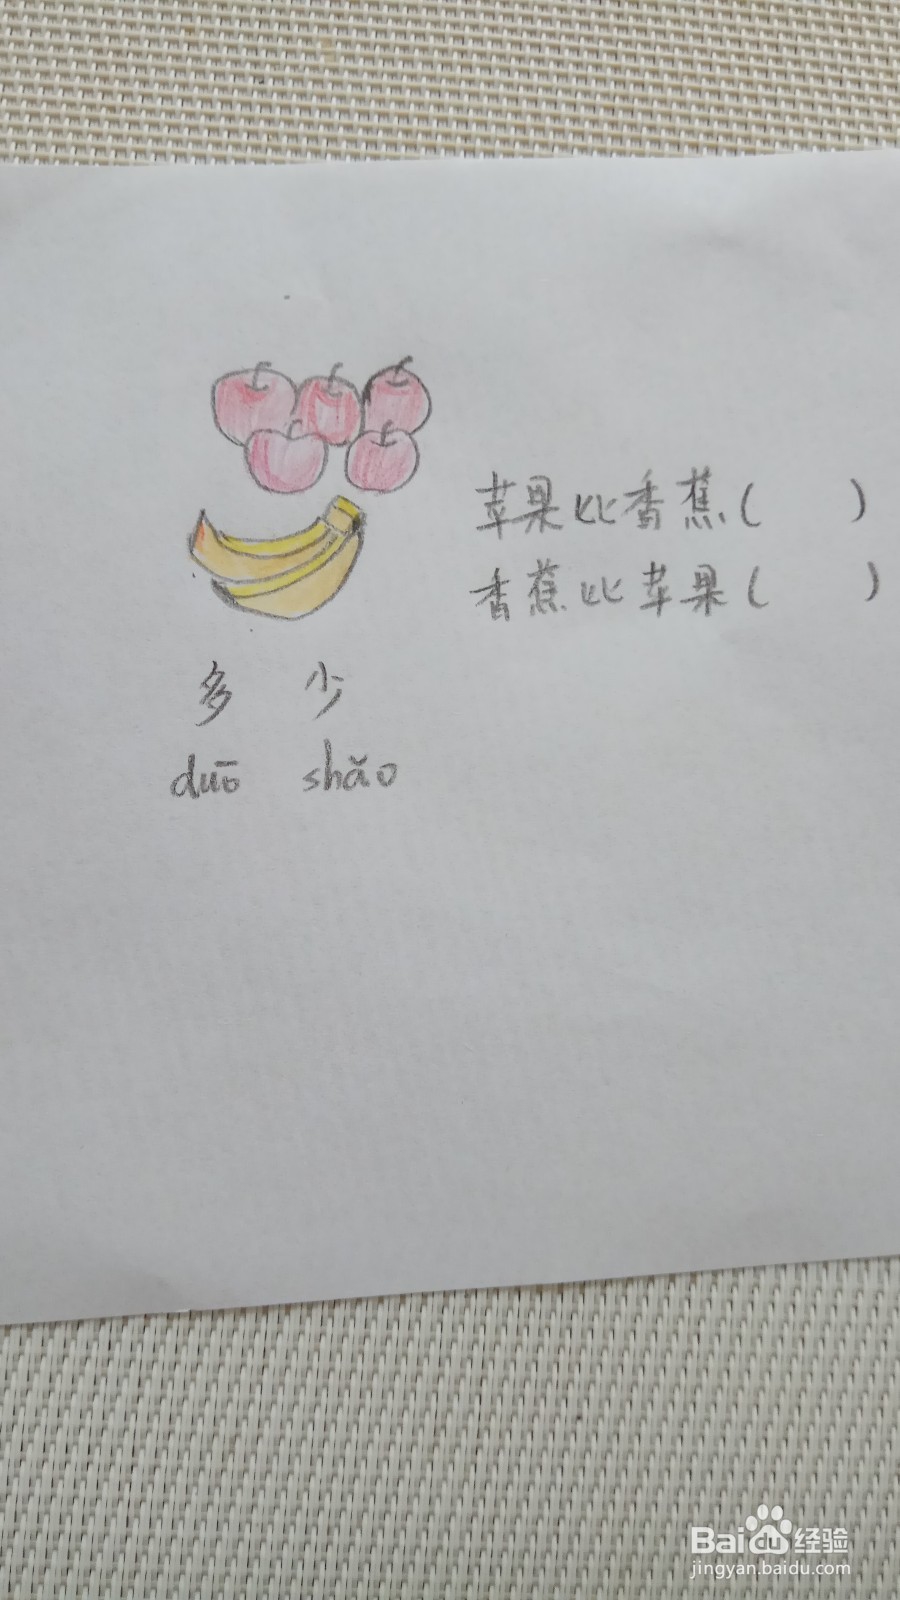 苹果比香蕉(      )
香蕉比苹果(      )
多 少
duō shǎo
Bai du 经验
jingyan.baidu.com